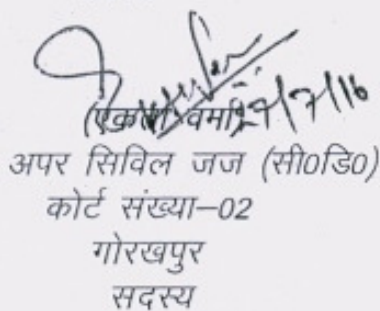 (एकता वर्मा) 27/7/16
अपर सिविल जज (सी0डि0)
कोर्ट संख्या–02
गोरखपुर
सदस्य